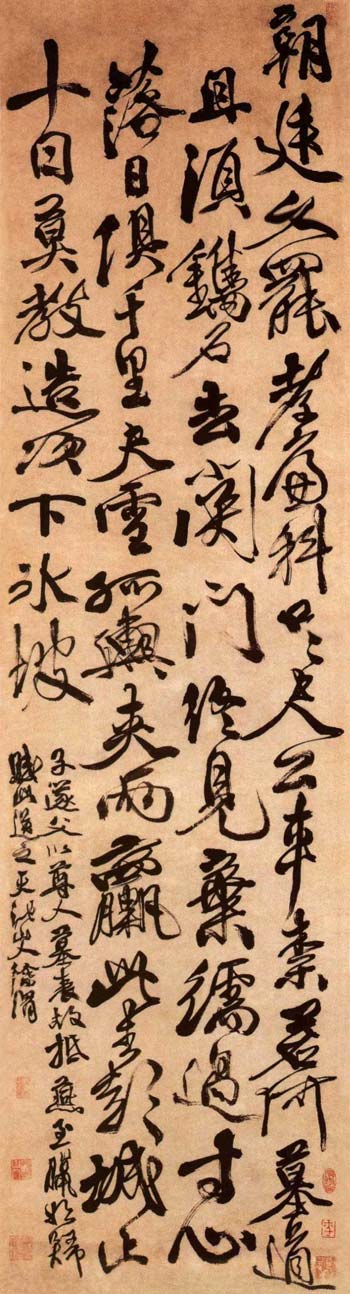 朝廷久罷孝廉科只尺公車柰若何墓道
且須鐫石去關門終見棄繻過寸心
落日俱千里大雪孤輿夾兩驘此去彭城止
十日莫教造次下冰坡
子遂父以尊人墓表故抵燕至臘始歸
賦此送之天池徐渭